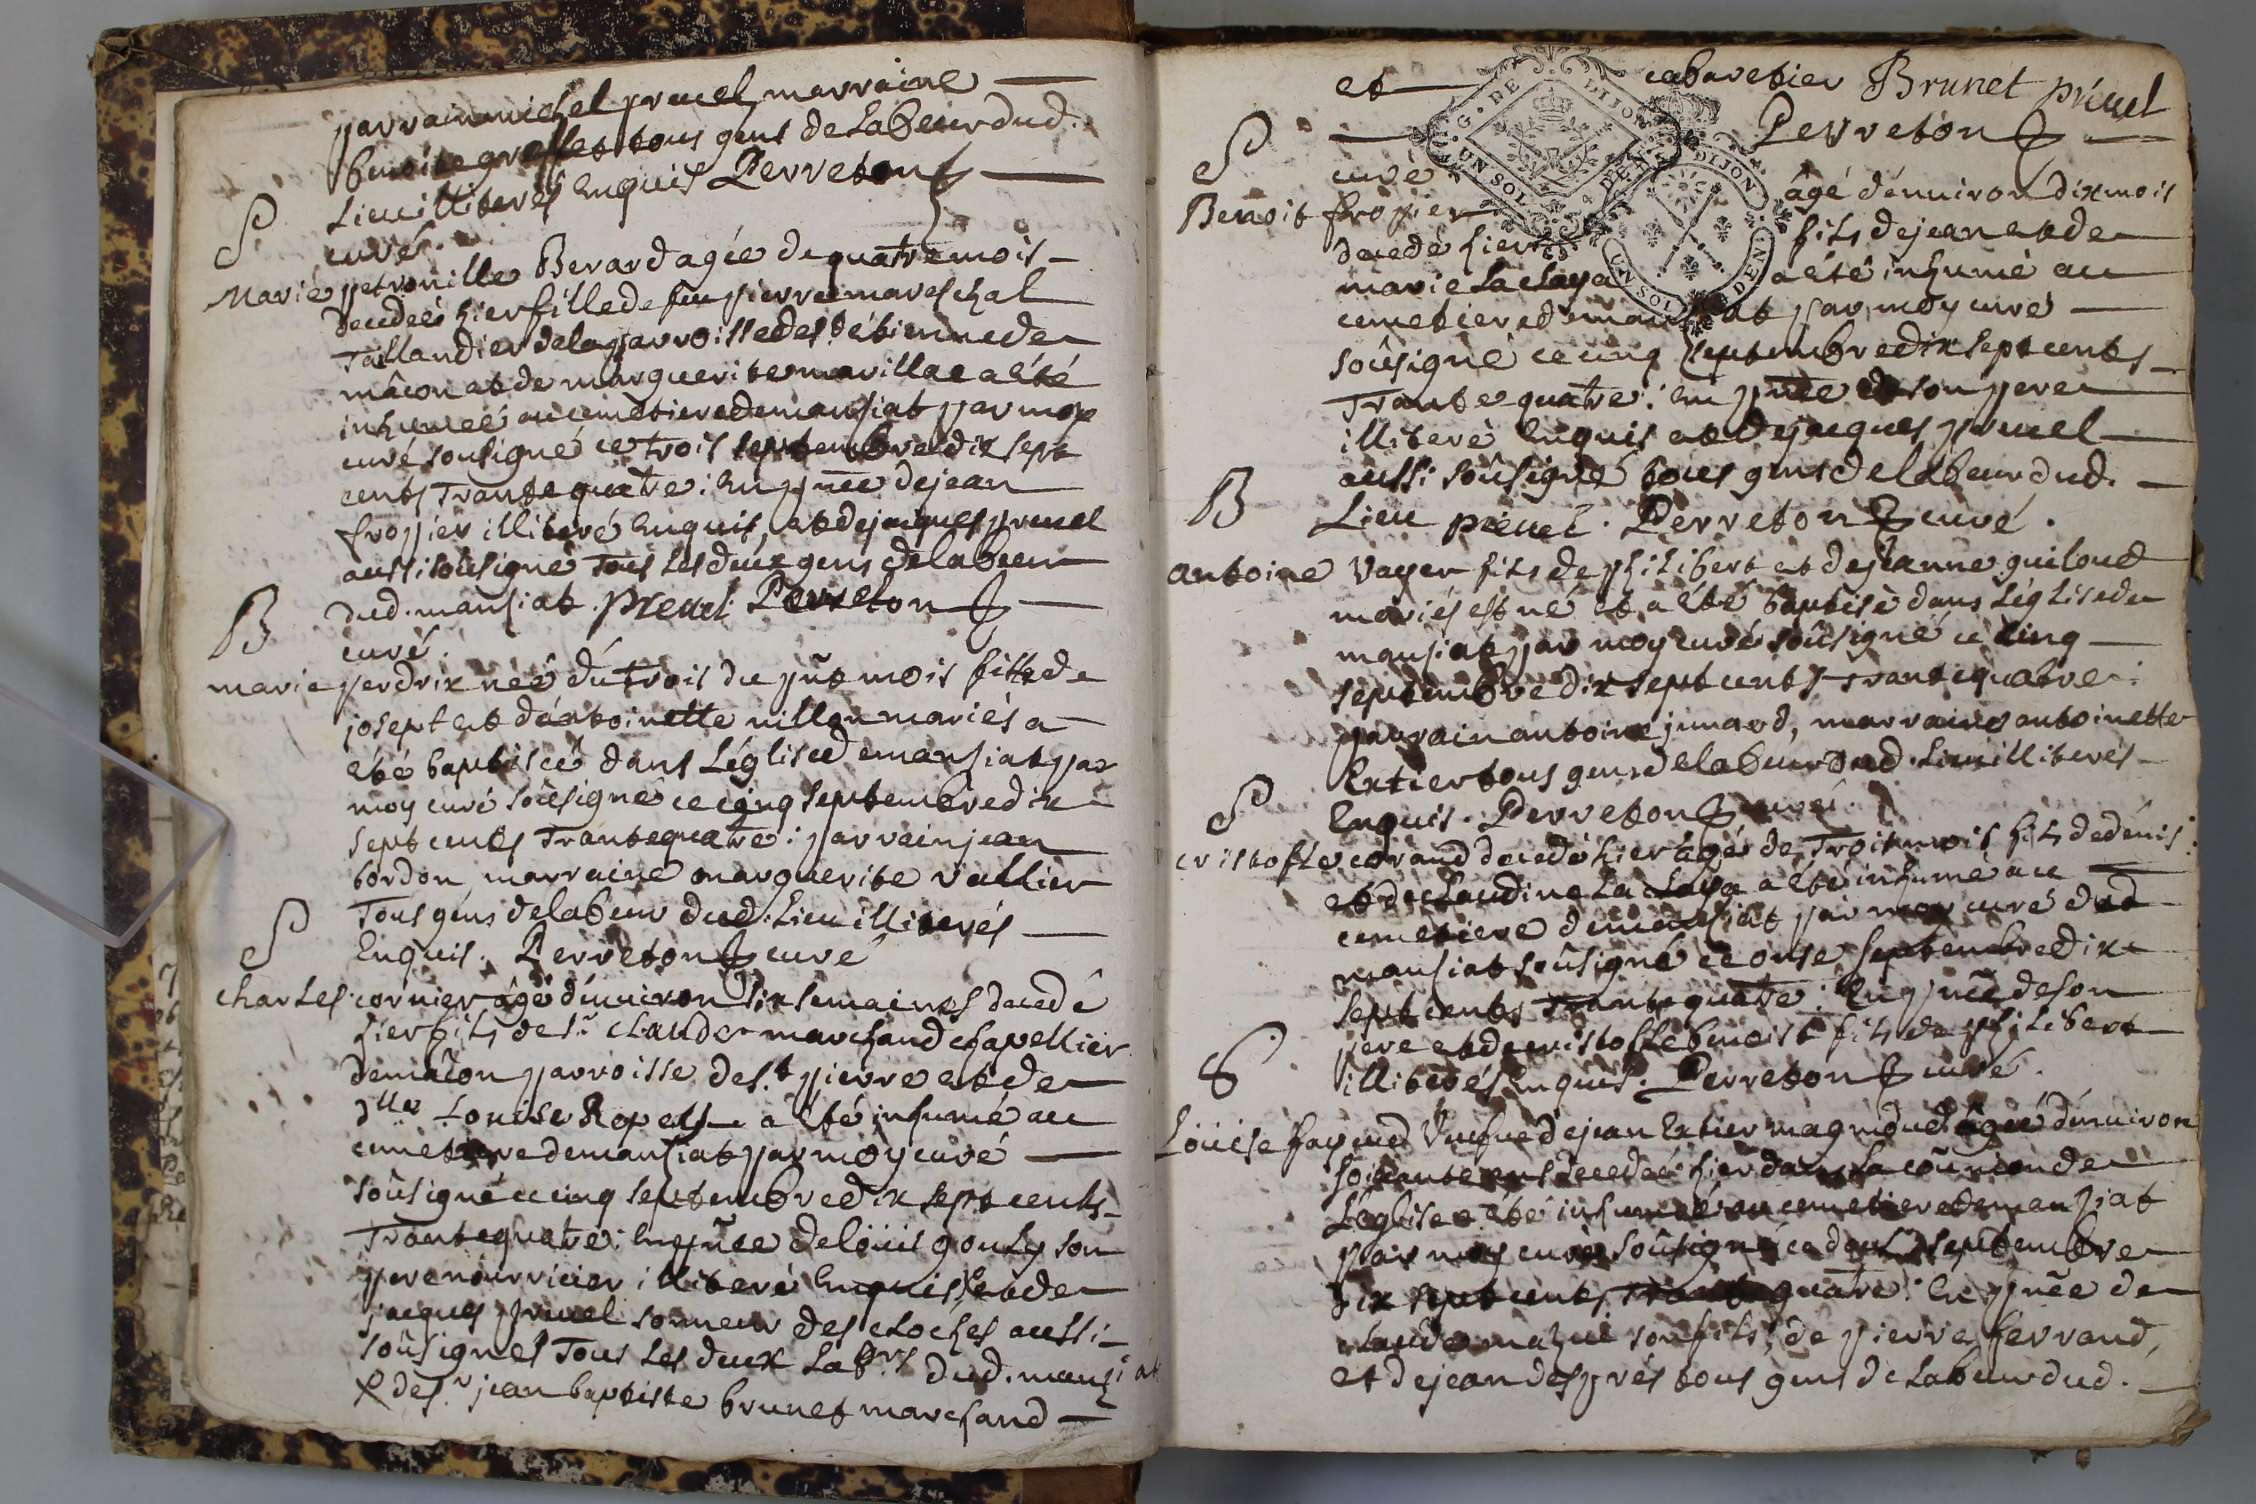 parrain michel preuel, marraine
benoite greffet tous gens de labeur dud.
Lieu illiterés Enquis Perreton
curé.
S
Marie petronille Berard agée de quatre mois
decedeé hier fille de feu pierre mareschal
Taillandier de la parroisse de st. étienne de
mâcon et de marguerite marillac a été
inhumeé au cemetiere de mansiat par moy
curé soûsigné ce trois septembre dix sept
cents Trante quatre: En pñce de jean
fropier illiteré Enquis, et de jacques preuel
aussi soûsigné Tous Les deux gens de labeur
dud. mansiat. Preuel Perreton
curé.
B
marie perdrix neé du trois du pñt mois fille de
josept et d'antoinette nillon mariés a
été baptiseé dans L'église de mansiat par
moy curé soûsigné ce cinq septembre dix
sept cents Trante quatre: parrain jean
bordon, marraine marguerite vallier
Tous gens de labeur dud. Lieu illiterés
Enquis. Perreton curé
S
charles cornier âgé d'enuiron six semaines decedé
hier fils de sr. claude marchand chapellier
de mâcon parroisse de st. pierre et de
dlle Louise Ropell a été inhumé au
cemetiere de mansiat par moy curé
soûsigné ce cinq septembre dix sept cents
Trante quatre: En pñce de Loüis gouly son
pere nourricier illiteré Enquis, et de
jacques preuel sonneur des cloches aussi
soûsignés Tous Les deux Labrs dud. mansiat
& de sr jean baptiste brunet marchand
et cabaretier Brunet Preuel
Perreton
curé
G. DE DIJON
UN SOL 4 DEN.
G. DE DIJON
UN SOL 4 DEN.
S
Benoit fropier âgé d'enuiron dix mois
decedé hier fils de jean et de
marie La claya a été inhumé au
cemetiere de mansiat par moy curé
soûsigné ce cinq septembre dix sept cents
Trante quatre: En pñce de son pere
illiteré Enquis et de jacques preuel
aussi soûsigné tous gens de labeur dud.
Lieu Preuel. Perreton curé.
B
antoine vayer fils de philibert et de jeanne guiloud
mariés est né et a été baptisé dans L'église de
mansiat par moy curé soûsigné ce cinq
septembre dix sept cents Trante quatre:
parrain antoine junard, marraine antoinette
Extier tous gens de labeur dud. Lieu illiterés
Enquis. Perreton curé.
S
cristofle corand decedé hier âgé de Trois mois fils de denis
et de claudine La claya a été inhumé au
cemetiere de mansiat par moy curé dud
mansiat soûsigné ce onse septembre dix
sept cents Trante quatre: En pñce de son
pere et de cristofle benoist fils de philibert
illiterés Enquis. Perreton curé.
S
Loüise fayoud Vuefue de jean Extier magnioud âgeé d'enuiron
soixante ans decedeé hier dans La coñunion de
L'église a été inhumeé au cemetiere de mansiat
par moy curé soûsigné ce septembre
dix sept cents Trante quatre: En pñce de
claude mazué son fils, de pierre ferrand,
et de jean després tous gens de labeur dud.